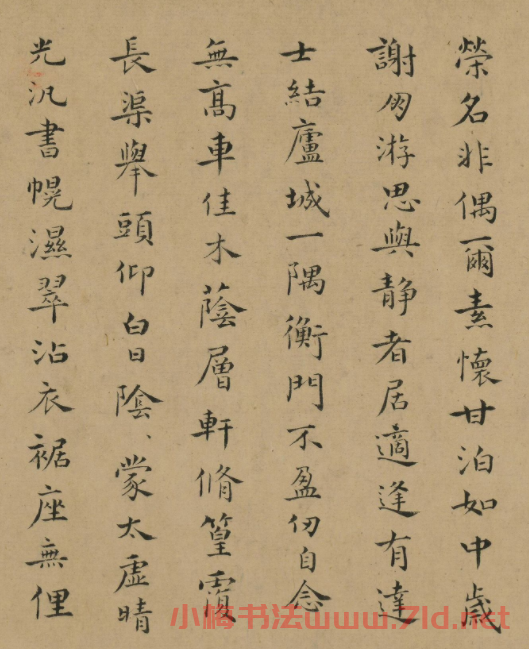 榮名非偶爾素懷甘泊如中歲
謝朋游思與静者居適逢有達
士結廬城一隅衡門不盈仞自念
無髙車佳木蔭層軒脩篁覆
長渠舉頭仰白日陰〻蒙太虛晴
光汎書幌濕翠沾衣裾座無俚
小楷书法www.7ld.net